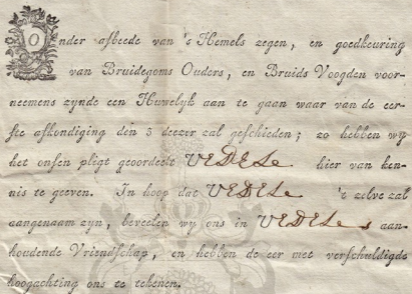 Onder afbeede van 's Hemels zegen, en goedkeuring
van Bruidegoms Ouders, en Bruids Voogden voor-
neemens zynde een Huwelyk aan te gaan waar van de eer-
ste afkondiging den 5 deezer zal geschieden; zo hebben wy
het onsen pligt geoordeelt UEDELe hier van ken-
nis te geeven. In hoop dat UEDELe 't zelve zal
aangenaam zyn, beveelen wy ons in UEDELes aan-
houdende Vriendschap, en hebben de eer met verschuldigde
hoogachting ons te tekenen.